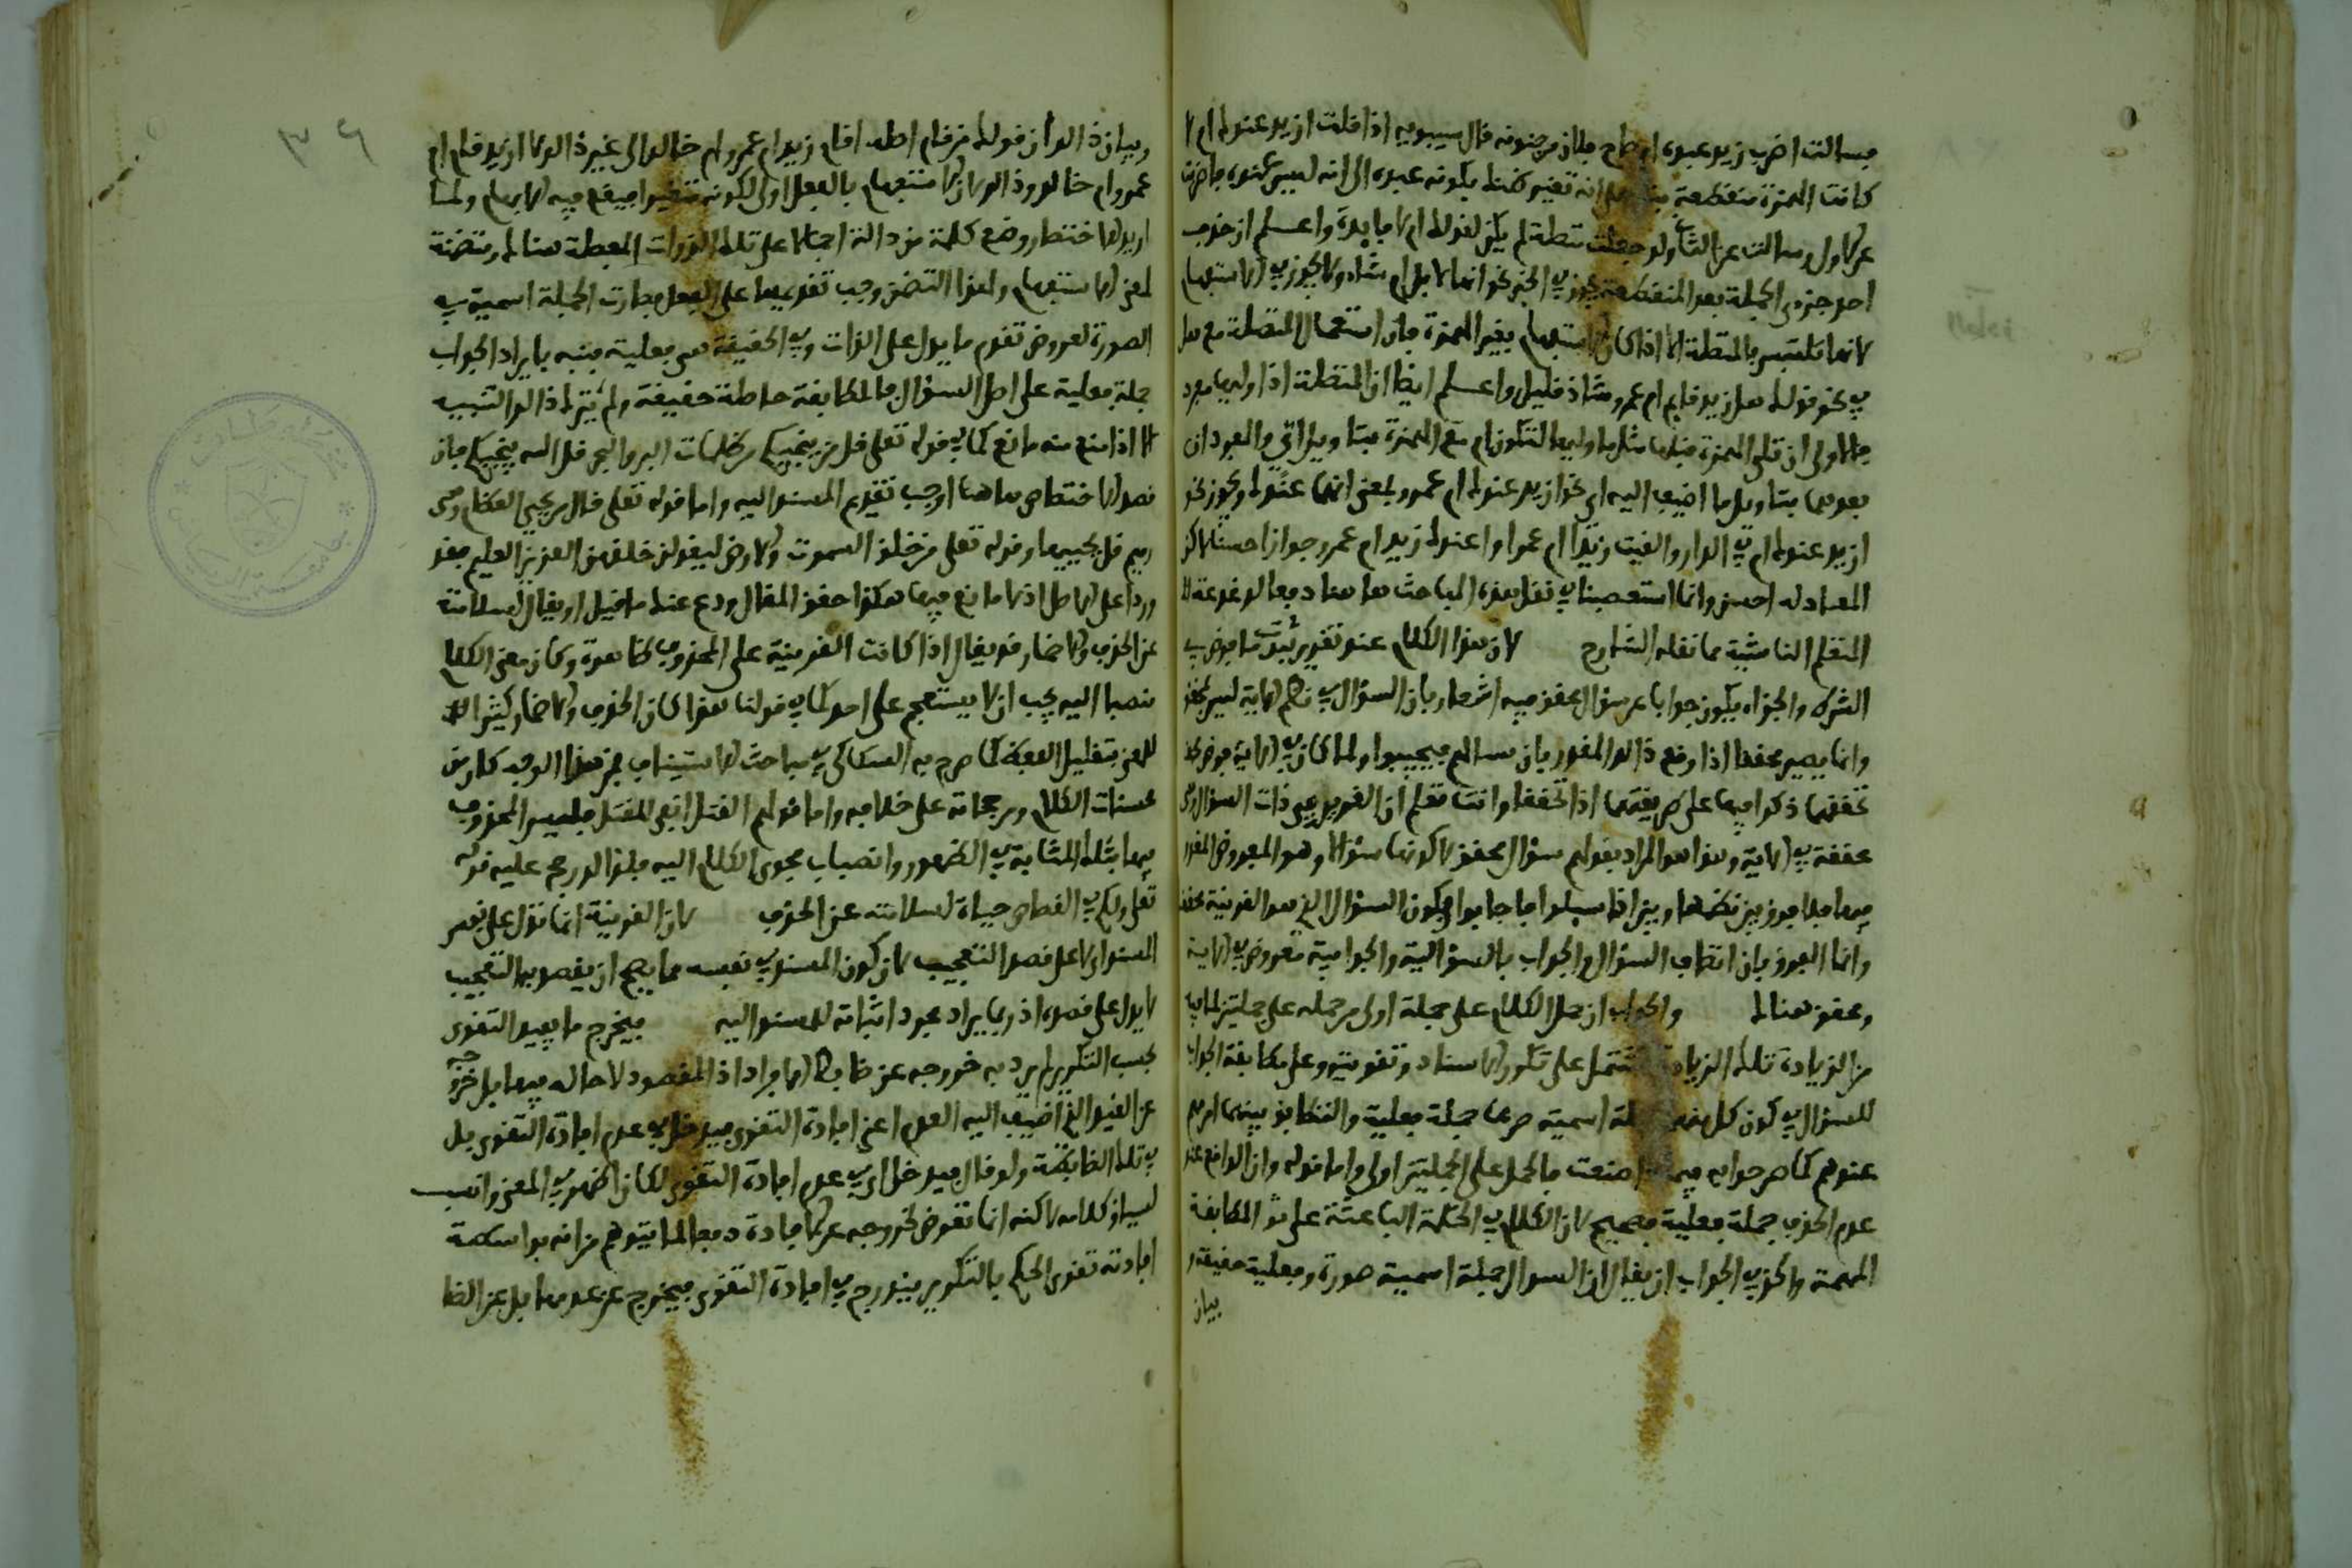 فسالت اضرب زيد عنده ام صاح فلان من جنونه قال سيبويه اذا قلت ازيد عندك ام لا
كانت الهمزة منقطعة تغير ظنك بكونه عنده الى انه ليس عنده فاضربت
عن الاول وسالت عن الثاني ولو جعلت متصلة لم يكن لقولك ام لا فايدة واعلم ان حذف
احد جزءي الجملة بعد المنقطعة يجوز في الخبر نحو انها لابل ام شاء ولا يجوز في الاستفهام
لانها تلتبس بالمتصلة الا اذا كان الاستفهام بغير الهمزة فان استعمال المتصلة مع هل
في نحو قولك هل زيد قايم ام عمرو شاذ قليل واعلم ايضا ان المتصلة اذا وليها مفرد
فالاولى ان تلي الهمزة قبلها مثل ما وليها لتكون ام مع الهمزة بتاويل اي والمفردان
بعدهما بتاويل ما اضيف اليه اي نحو ازيد عندك ام عمرو بمعنى ايهما عندك ويجوز نحو
ازيد عندك ام في الدار والقيت زيدا ام عمرا واعندك زيد ام عمرو جوازا حسنا لاكن
المعادلة احسن وانما استعصينا في نقل هذه المباحث هاهنا دفعا لدغدغة
المتعلم الناشئة مما نقله الشارح لان هذا الكلام عند تقدير ثبوت ما فرض في
الشرط والجزاء يكون جوابا عن سؤال محقق فيه اشعار بان السؤال في نظم الاية ليس بمحقق
وانما يصير محققا اذا وقع ذالك المقدر بان سالهم فيجيبوا ولما كان في الاية فرض
تحققهما ذكرا فيها على طريقتهما اذا تحققا وانت تعلم ان التقدير هي ذات السؤال وهي
محققة في الاية وهذا هو المراد بقولهم سؤال محقق لا كونها سؤالا وهو المعروض المقدر
فيها فلا فرق بين نظمها وبين اذا سيلوا فاجابوا في كون السؤال الذي هو القرينة محققا
وانما الفرق بان اتصاف السؤال والجواب بالسؤالية والجوابية مفروض في الاية
ومحقق هنالك والجواب ان حمل الكلام على جملة اولى من حمله على جملتين لما فيه
من الزيادة تلك الزيادة تشتمل على تكرر الاسناد وتقويته وعلى مطابقة الجواب
للسؤال في كون كل منهما جملة اسمية خبرها جملة فعلية والتطابق بينهما امر مهم
عندهم كما صرحوا به فيما ذا صنعت فالحمل على الجملتين اولى واما قوله وان الواقع عند
عدم الحذف جملة فعلية فصحيح لان الكلام في النكتة الباعثة على ترك المطابقة
المهمة والحق في الجواب ان يقال ان السوال جملة اسمية صورة وفعلية حقيقة
بيان
٣٦
وبيان ذالك ان قولك من قام اصله اقام زيد ام عمرو ام خالد الى غير ذالك لا ازيد قام ام
عمرو ام خالد وذالك لان الاستفهام بالفعل اولى لكونه متغيرا فيقع فيه الابهام ولما
اريد الاختصار وضع كلمة من دالة اجمالا على تلك الذوات المفصلة هنالك ومتضمنة
لمعنى الاستفهام ولهذا التضمن وجب تقديمها على الفعل فصارت الجملة اسمية في
الصورة لعروض تقدم ما يدل على الذات وفي الحقيقة هي فعلية فنبه بايراد الجواب
جملة فعلية على اصل السؤال فالمطابقة حاصلة حقيقة ولم يترك ذالك التنبيه
الا اذا منع منه مانع كما في قوله تعلى قل من ينجيكم من ظلمات البر والبحر قل الله ينجيكم فان
قصد الاختصاص هاهنا اوجب تقديم المسند اليه واما قوله تعلى قال من يحيي العظام وهي
رميم قل يحييها وقوله تعلى من خلق السموات والارض ليقولن خلقهن العزيز العليم فقد
وردا على الاصل اذ لا مانع فيهما هكذا حقق المقال ودع عنك ما قيل او يقال لسلامته
عن الحذف والاضمار قد يقال اذا كانت القرينة على المحذوف ظاهرة وكان معنى الكلام
منصبا اليه يجب ان لا يستعجم على احد كما في قولنا هذا كان الحذف والاضمار كثيرا
للمعنى بتقليل اللفظ كما صرح به السكاكي في مباحث الاستيناف فمن هذا الوجه كان من
محسنات الكلام ومرجحاته على خلافه واما قولهم القتل انفى للقتل فليس المحذوف
فيها بتلك المثابة في الظهور وانصباب فحوى الكلام اليه فلذالك رجح عليه قوله
تعلى ولكم في القصاص حياة لسلامته عن الحذف لان القرينة انما تدل على نفس
المسند لا على قصد التعجيب لان كون المسند في نفسه مما يصح ان يقصد به التعجيب
لا يدل على قصده اذ ربما يراد مجرد اثباته للمسند اليه فيخرج ما يفيد التقوى
بحسب التكرير لم يرد به خروجه عن ضابط الافراد اذ المقصود ادخاله فيها بل خروجه
عن القيد الذي اضيف اليه العدم اعني افادة التقوى فيدخل في عدم افادة التقوى بل
في تلك الضابطة ولو قال فيدخل اي في عدم افادة التقوى لكان اظهر في المعنى وانسب
لسياق كلامه لاكنه انما تعرض لخروجه عن الافادة دفعا لما يتوهم من انه بواسطة
افادته تقوى الحكم بالتكرير يندرج في افادة التقوى فيخرج عن عدمها بل عن الضا